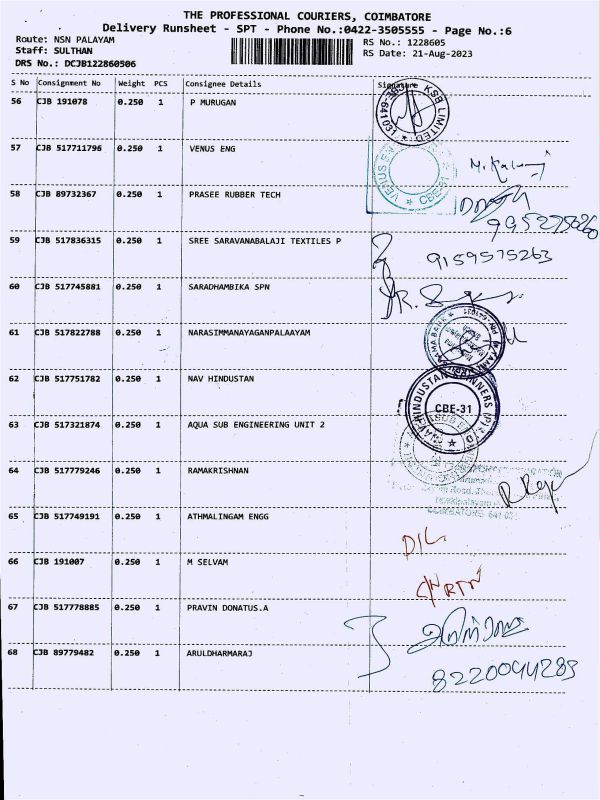 THE PROFESSIONAL COURIERS, COIMBATORE
Delivery Runsheet - SPT - Phone No.:0422-3505555 - Page No.:6
Route: NSN PALAYAM
RS No.: 1228605
Staff: SULTHAN
RS Date: 21-Aug-2023
DRS No.: DCJB122860506
S No Consignment No Weight PCS Consignee Details Signature
56 CJB 191078 0.250 1 P MURUGAN
KSB LIMITED
57 CJB 517711796 0.250 1 VENUS ENG
VENUS CBE-
58 CJB 89732367 0.250 1 PRASEE RUBBER TECH
59 CJB 517836315 0.250 1 SREE SARAVANABALAJI TEXTILES P
9159575263
60 CJB 517745881 0.250 1 SARADHAMBIKA SPN
61 CJB 517822788 0.250 1 NARASIMMANAYAGANPALAAYAM
62 CJB 517751782 0.250 1 NAV HINDUSTAN
HINDUSTAN SPINNERS (P)
CBE-31
63 CJB 517321874 0.250 1 AQUA SUB ENGINEERING UNIT 2
64 CJB 517779246 0.250 1 RAMAKRISHNAN
COIMBATORE
65 CJB 517749191 0.250 1 ATHMALINGAM ENGG
D/L
66 CJB 191007 0.250 1 M SELVAM
67 CJB 517778885 0.250 1 PRAVIN DONATUS.A
68 CJB 89779482 0.250 1 ARULDHARMARAJ